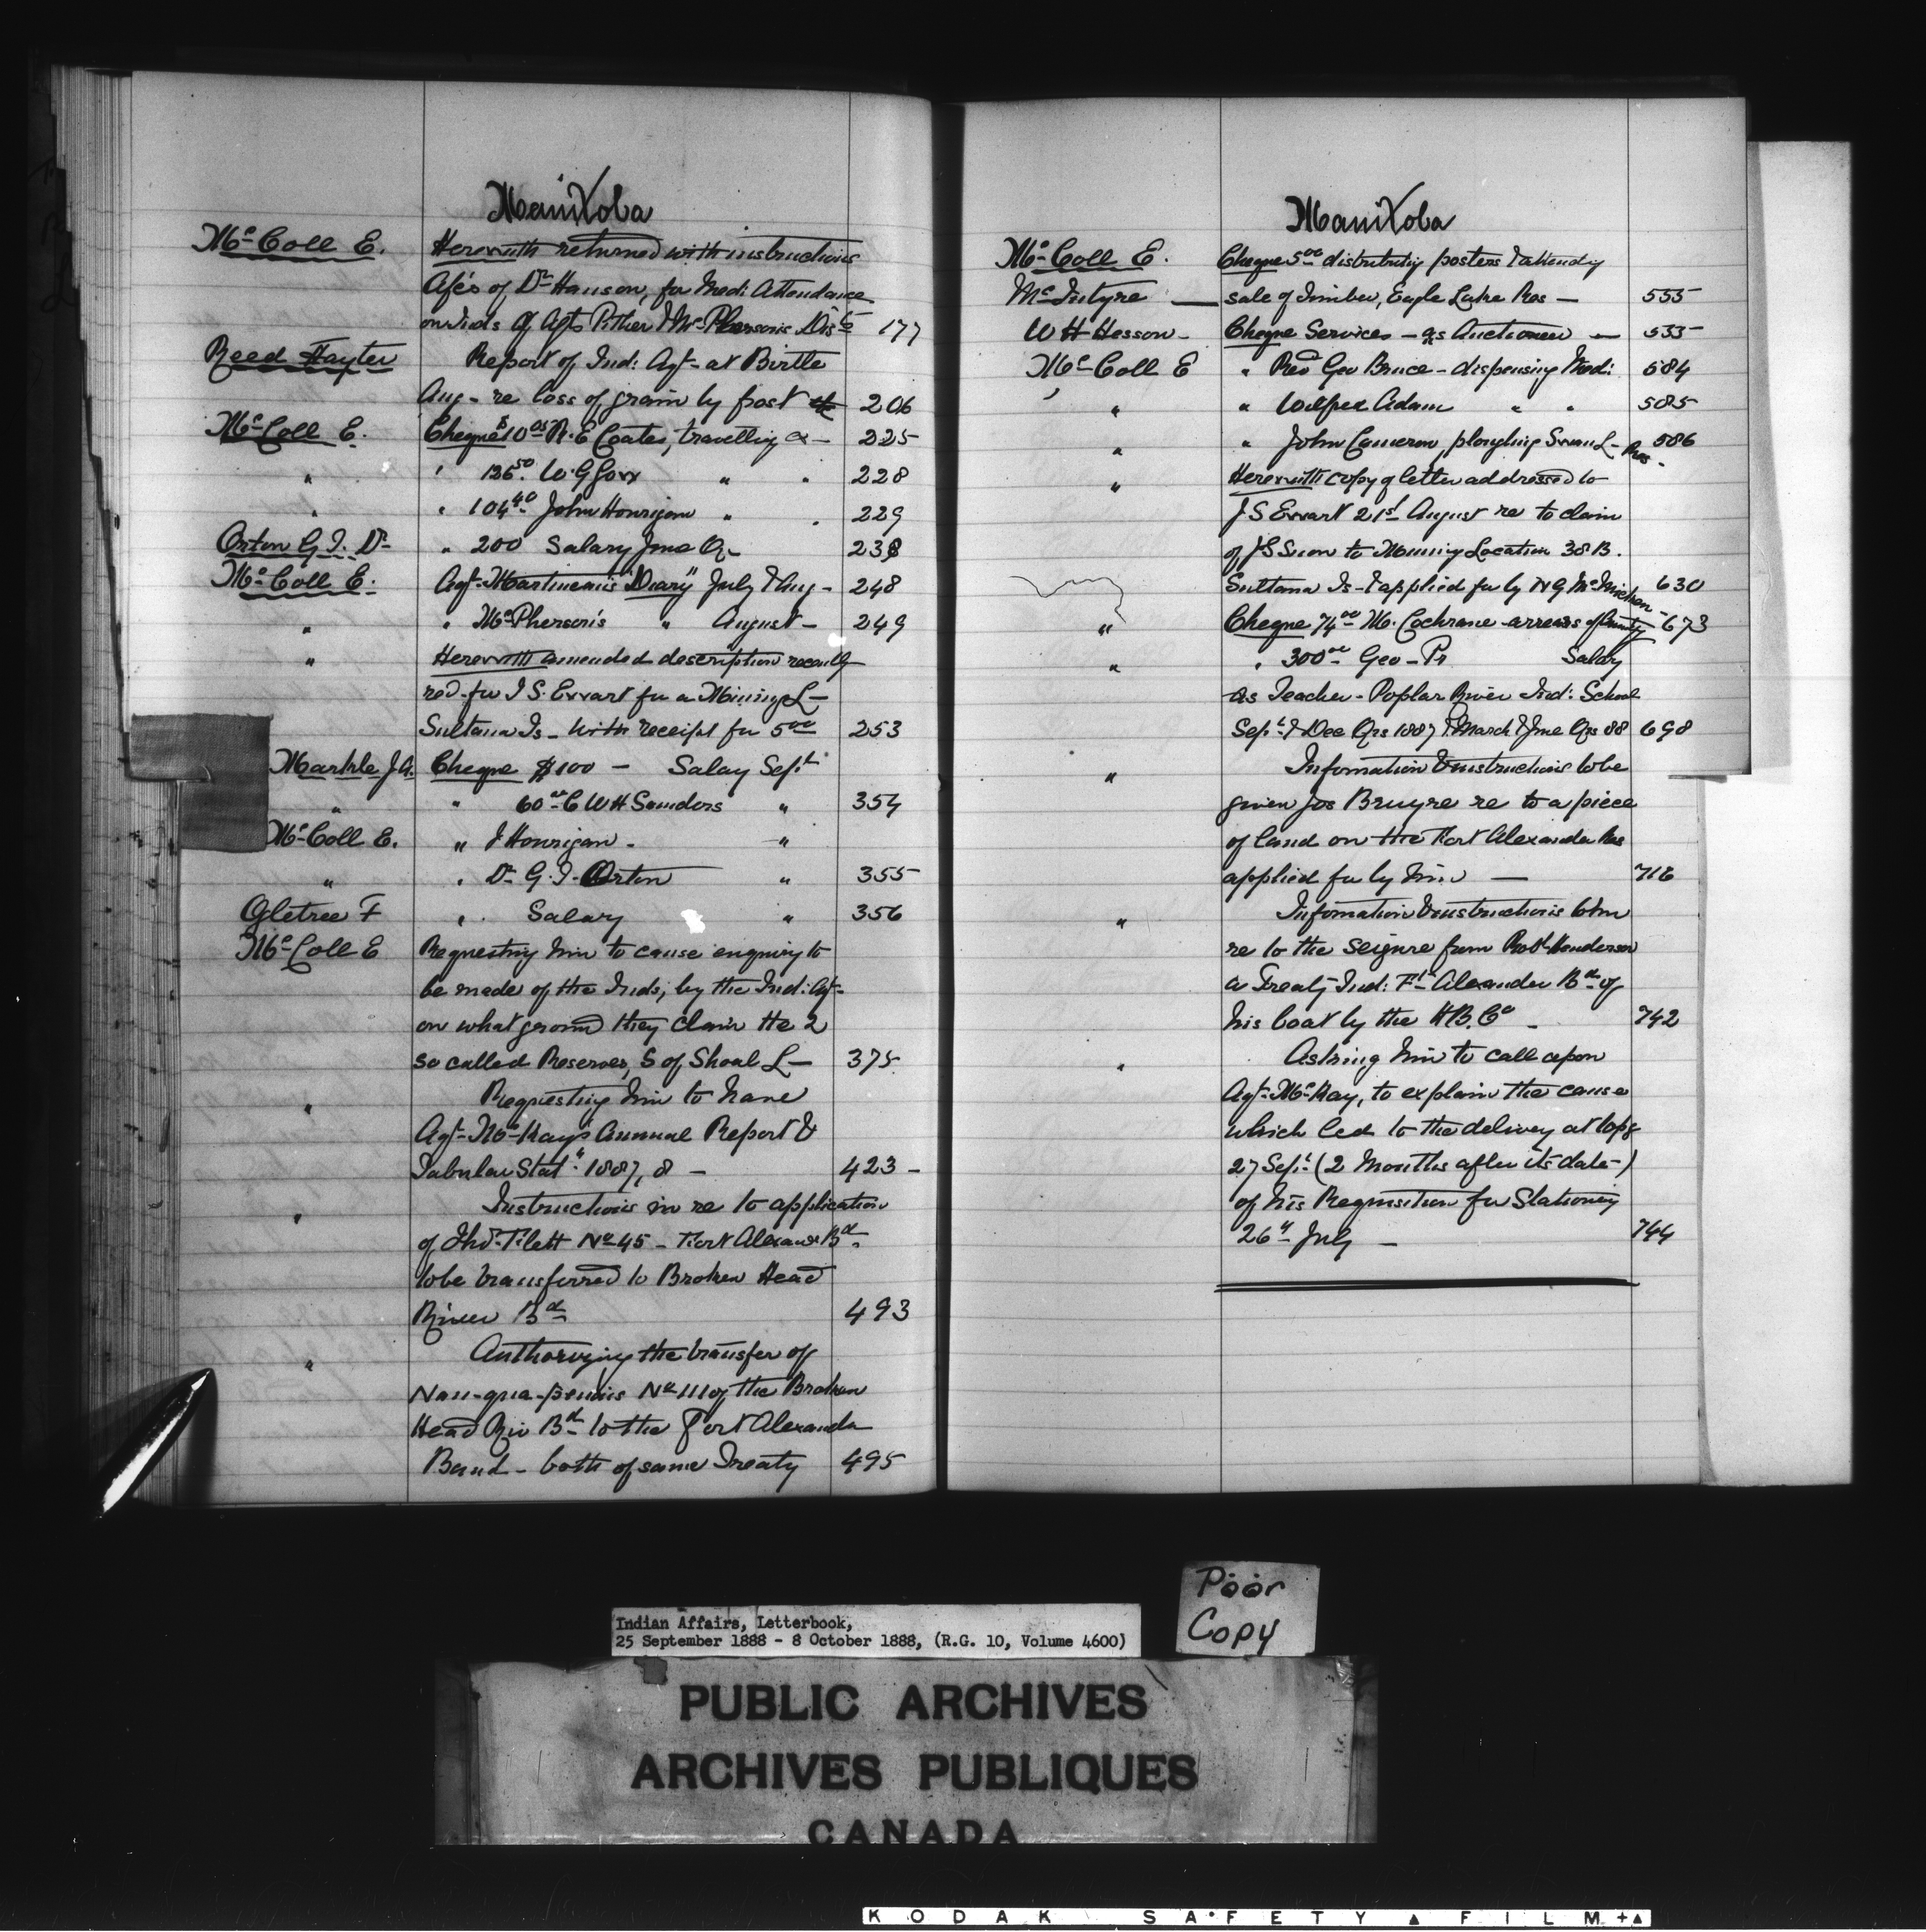 Manitoba
McColl E. Herewith returned with instructions
A/cs of Dr Hanson, for Medi: Attendance
on Inds of Agts Pither & McPherson's Dists 177
Reed Hayter Report of Ind: Agt at Birtle
Aug - re loss of grain by frost 206
McColl E. Cheque $10 R. E Coates, travelling 225
" " 136.50 W. G 228
" " 104.40 John Hourigan " " 229
Orton G. I. Dr " 200 Salary June Qr 238
McColl E. Agt Martineau's "Diary" July & Aug - 248
" " McPherson's " August - 249
" Herewith amended description recently
recd for J S. Ewart for a Mining L -
Sultana Is - with receipt for 5.00 253
Markle J A. Cheque $100 - Salary Sept
" " 60.00 C W H Sanders " 354
McColl E. " J Hourigan - "
" " Dr G. I. Orton " 355
Ogletree F " Salary " 356
McColl E Requesting him to cause enquiry to
be made of the Inds; by the Ind: Agt
on what ground they claim the 2
so called Reserves, S of Shoal L - 375
" Requesting him to have
Agt McKay's Annual Report &
Tabular Stat 1887, 8 - 423 -
" Instructions in re to application
of No 45 - Fort Alexandr Bd
to be transferred to Broken Head
River Bd 493
" Authorizing the transfer of
No 111 of the Broken
Head Riv Bd to the Fort Alexander
Band - both of same Treaty 495
Manitoba
McColl E. Cheque 5.00 distributing posters & attendg
McIntyre — sale of Timber, Eagle Lake Res — 555
W H Hesson - Cheque Services - as Auctioneer — 555
McColl E " Revd Geo Bruce - dispensing Medi: 584
" " Wilfred Adam " " 585
" " John Cameron, ploughing Swan L - Res - 586
" Herewith copy of letter addressed to
J S Ewart 21st August re to claim
of J S Snow to Mining Location 38 B.
Sultana Is - & applied for by N G McMicken - 630
" Cheque 74.00 M. Cochrane - arrears of Annuity - 673
" " 300.00 Geo - Salary
as Teacher - Poplar River Ind: School
Sept & Dec Qrs 1887 & March & June Qrs 88 698
" Information & instructions to be
given Jos Bruyre re to a piece
of land on the Fort Alexander Res
applied for by him —
" Information & instructions to him
re to the seizure from Robt Henderson
a Treaty Ind: Ft Alexander Bd of
his boat by the H B. Co - 742
" Asking him to call upon
Agt McKay, to explain the cause
which led to the delivery at
27 Sept (2 Months after its date -)
of his Requisition for Stationery
26" July — 744
Poor
Copy
Indian Affairs, Letterbook,
25 September 1888 - 8 October 1888, (R.G. 10, Volume 4600)
PUBLIC ARCHIVES
ARCHIVES PUBLIQUES
CANADA
KODAK SAFETY FILM